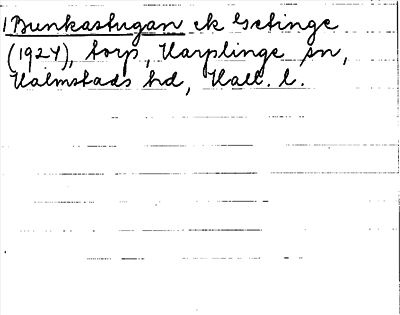 Bunkastugan ek Getinge
(1927), torp, Harplinge sn,
Halmstads hd, Hall. l.